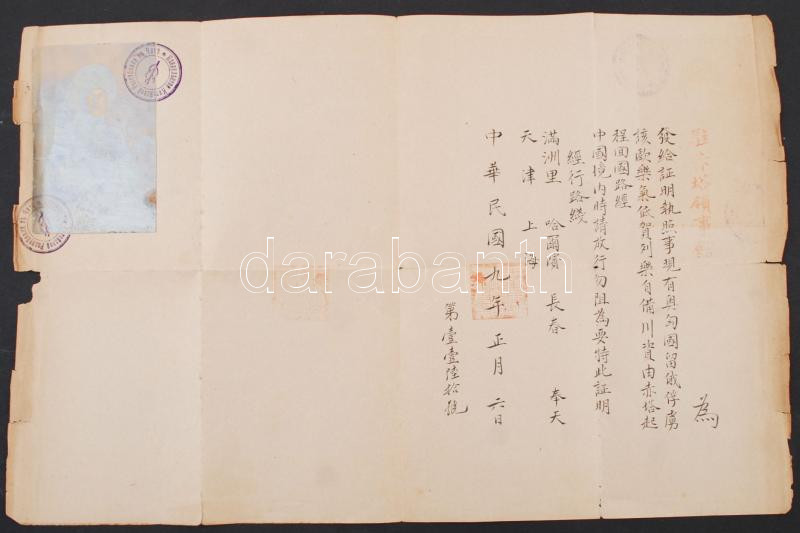 駐赤塔領事館
為
發給証明執照事現有奧匈國留俄俘虜
該歐樂氣依賀列樂自備川資由赤塔起
程回國路經
中國境内時請放行勿阻為要特此証明
經行路綫
滿洲里 哈爾濱 長春 奉天
天津 上海
中華民國九年正月六日
第壹壹陸拾號
darabanth